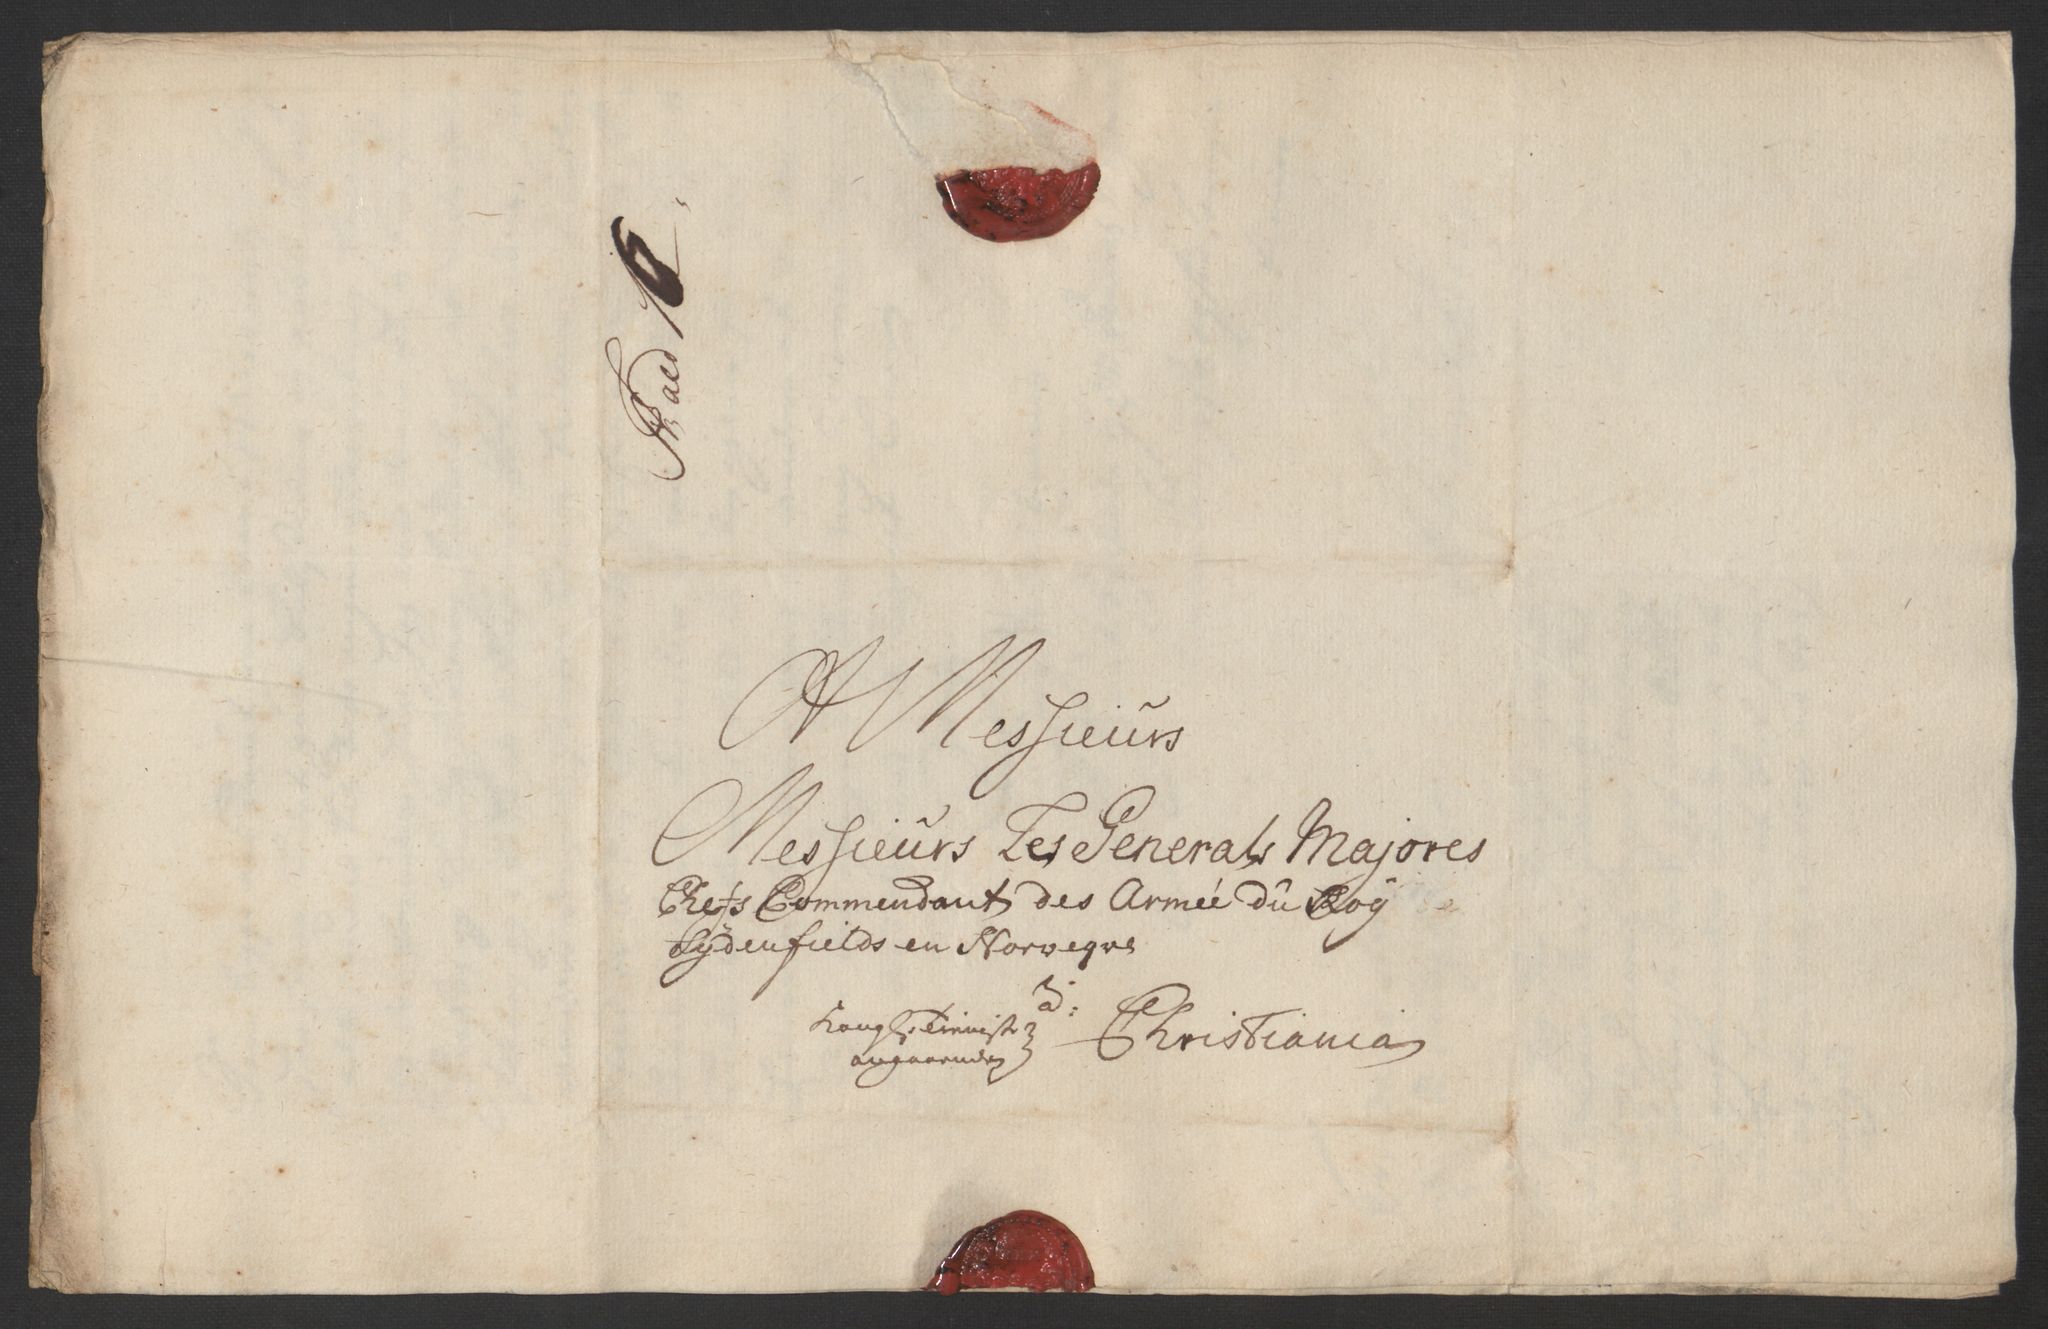 A Messieurs
Messieurs Les Generals Majores
Chefs Commendant des Armée du Roÿ de
Sydenfields en Norvegve
Kongl: Tienniste
angaaende
à:
Christiania